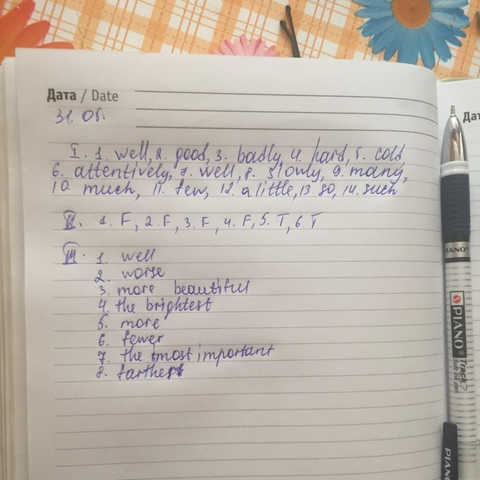 Дата / Date
31.05.
I. 1. well, 2. good, 3. badly, 4. hard, 5. cold
6. attentively, 7. well, 8. slowly, 9. many,
10. much, 11. few, 12. a little, 13. so, 14. such
II. 1. F, 2. F, 3. F, 4. F, 5. T, 6. T
III. 1. well
2. worse
3. more beautiful
4. the brightest
5. more
6. fewer
7. the most important
8. farthest
PIANO
PIANO
PIANO